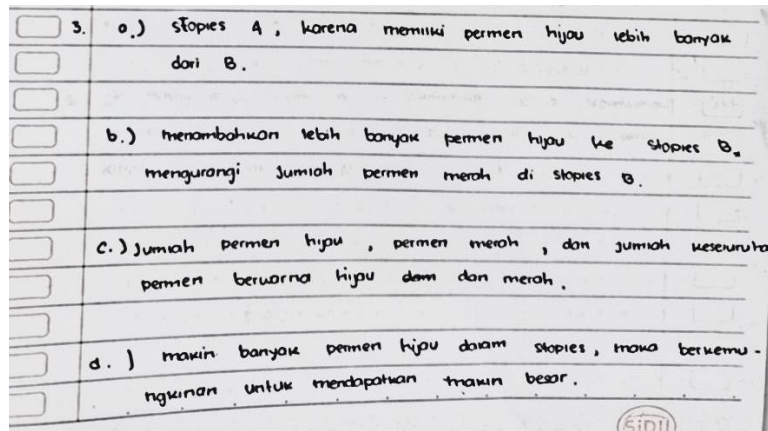 3. a.) stoples A, karena memiliki permen hijau lebih banyak
dari B.
b.) menambahkan lebih banyak permen hijau ke stoples B.
mengurangi jumlah permen merah di stoples B.
c.) Jumlah permen hijau, permen merah, dan jumlah keseluruha
permen berwarna hijau dam dan merah.
d.) makin banyak permen hijau dalam stoples, maka berkemu-
ngkinan untuk mendapatkan makin besar.
SiDU